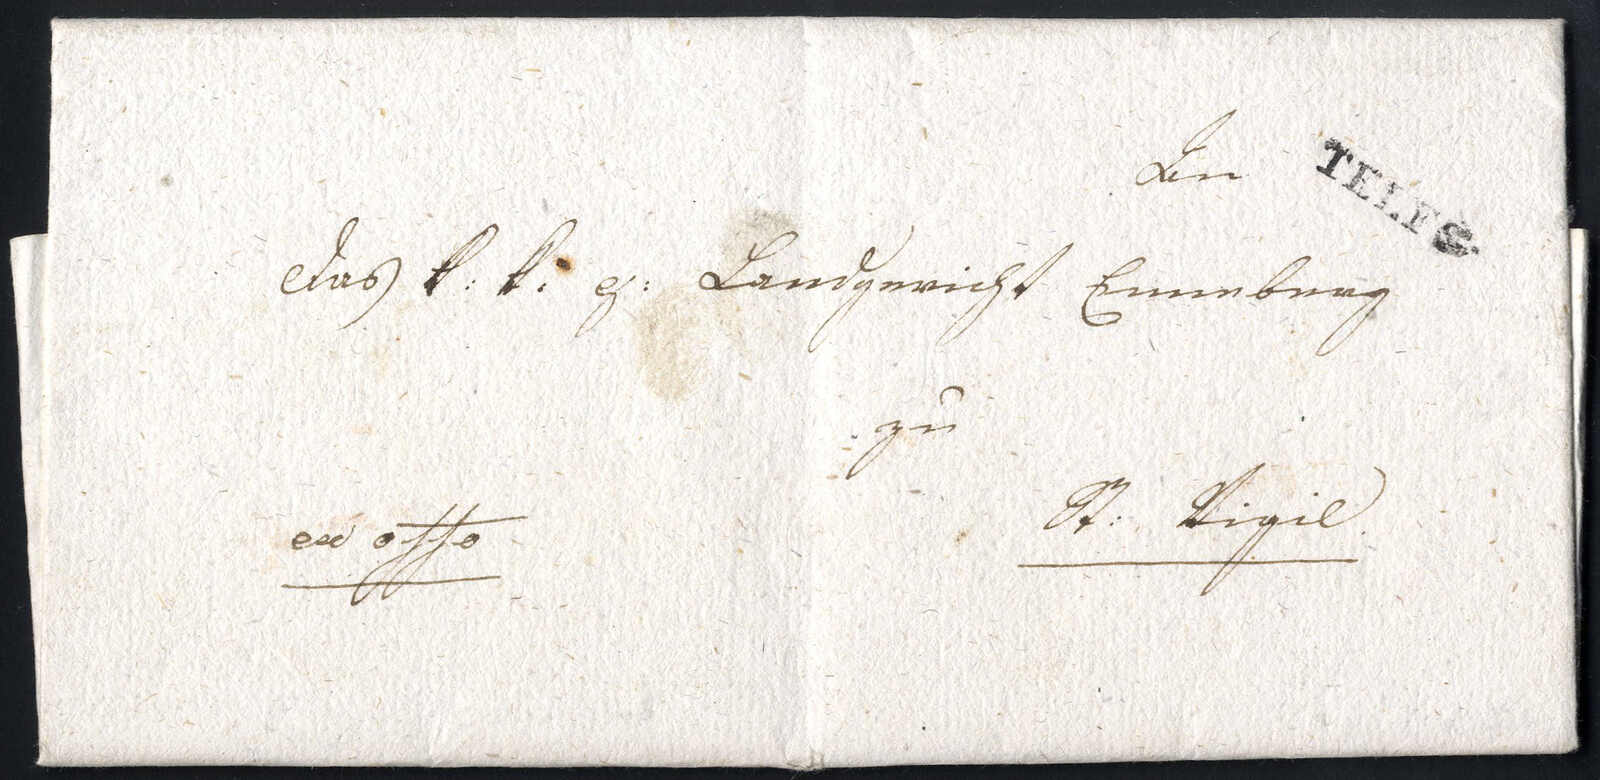 An
TELFS.
das k: k: g: Landgericht Enneberg
zu
St: Vigil
ex offo